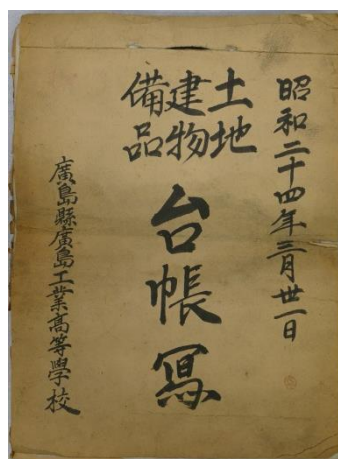 昭和二十四年三月丗一日
土地
建物
備品
台帳冩
廣島縣廣島工業高等學校